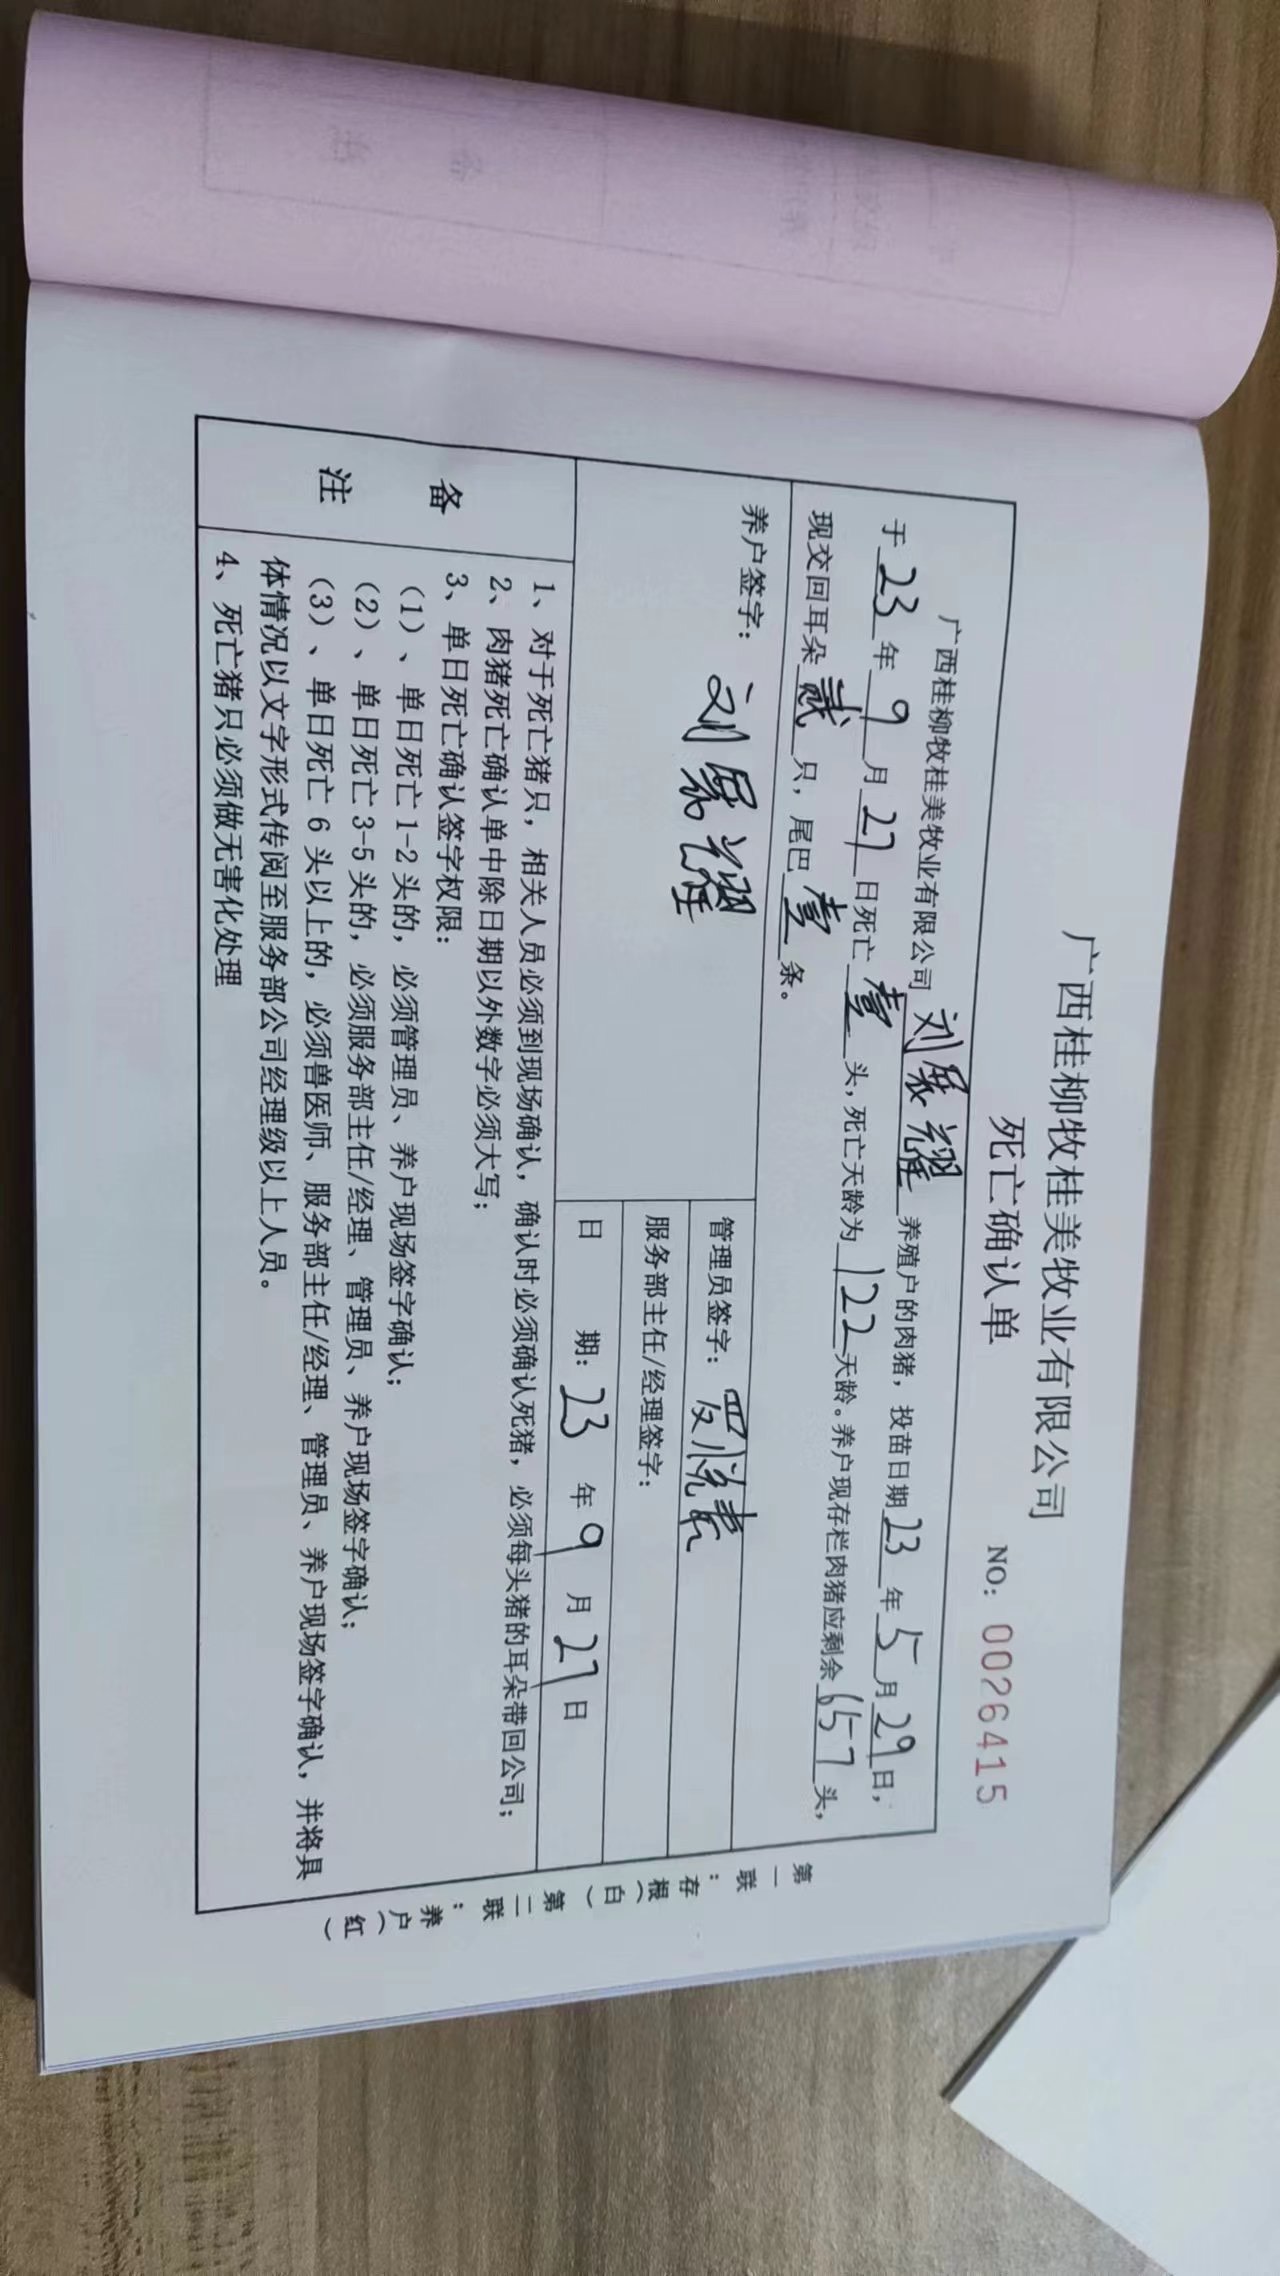 广西桂柳牧桂美牧业有限公司
死亡确认单
NO: 0026415
广西桂柳牧桂美牧业有限公司 刘展耀 养殖户的肉猪，投苗日期 23 年 5 月 29 日，
于 23 年 9 月 27 日死亡 壹 头，死亡天龄为 122 天龄。养户现存栏肉猪应剩余 657 头，
现交回耳朵 贰 只，尾巴 壹 条。
养户签字： 刘展耀
管理员签字：
服务部主任/经理签字：
日 期：23 年 9 月 27 日
备注
1、对于死亡猪只，相关人员必须到现场确认，确认时必须确认死猪，必须每头猪的耳朵带回公司；
2、肉猪死亡确认单中除日期以外数字必须大写；
3、单日死亡确认签字权限：
（1）、单日死亡 1-2 头的，必须管理员、养户现场签字确认；
（2）、单日死亡 3-5 头的，必须服务部主任/经理、管理员、养户现场签字确认；
（3）、单日死亡 6 头以上的，必须兽医师、服务部主任/经理、管理员、养户现场签字确认，并将具
体情况以文字形式传阅至服务部公司经理级以上人员。
4、死亡猪只必须做无害化处理
第一联：存根（白） 第二联：养户（红）